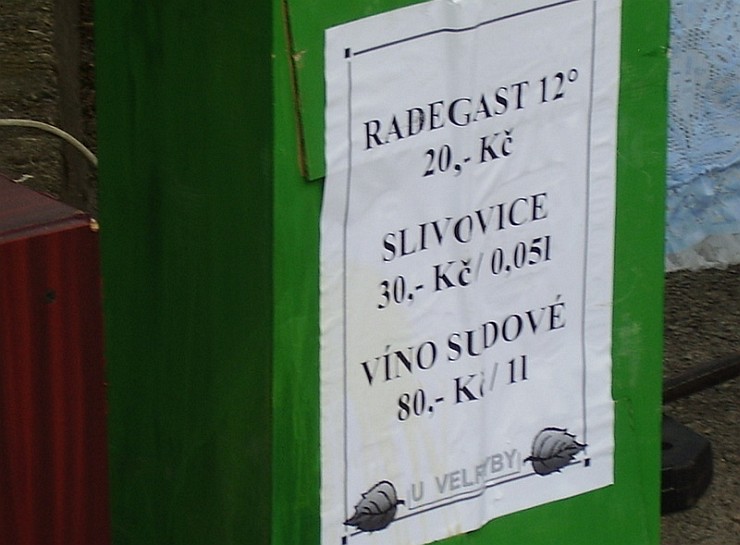 RADEGAST 12°
20,- Kč
SLIVOVICE
30,- Kč/ 0,05l
VÍNO SUDOVÉ
80,- Kč/ 1l
U VELRYBY